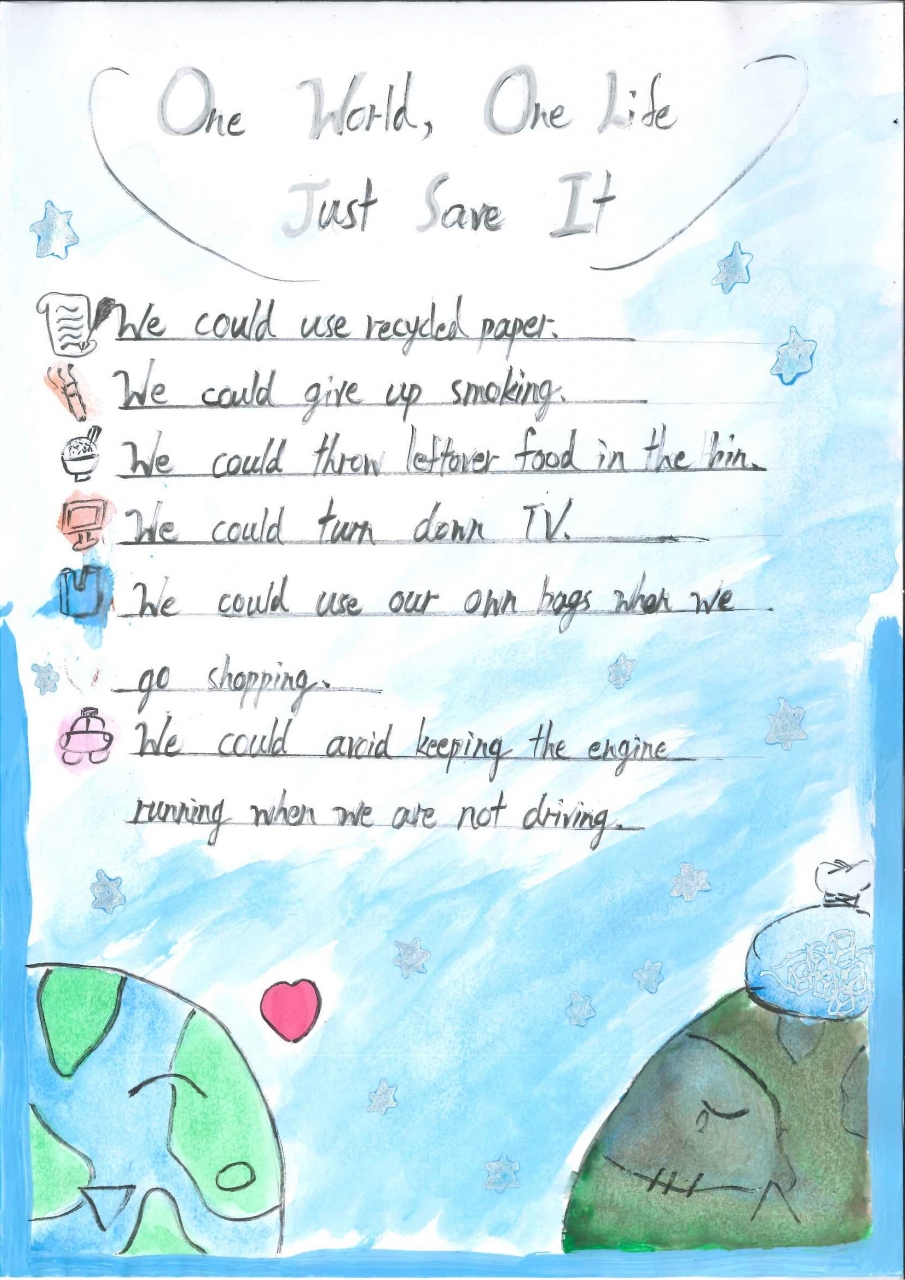 One World, One Life
Just Save It
We could use recycled paper.
We could give up smoking.
We could throw leftover food in the bin.
We could turn down TV.
We could use our own bags when we
go shopping.
We could avoid keeping the engine
running when we are not driving.